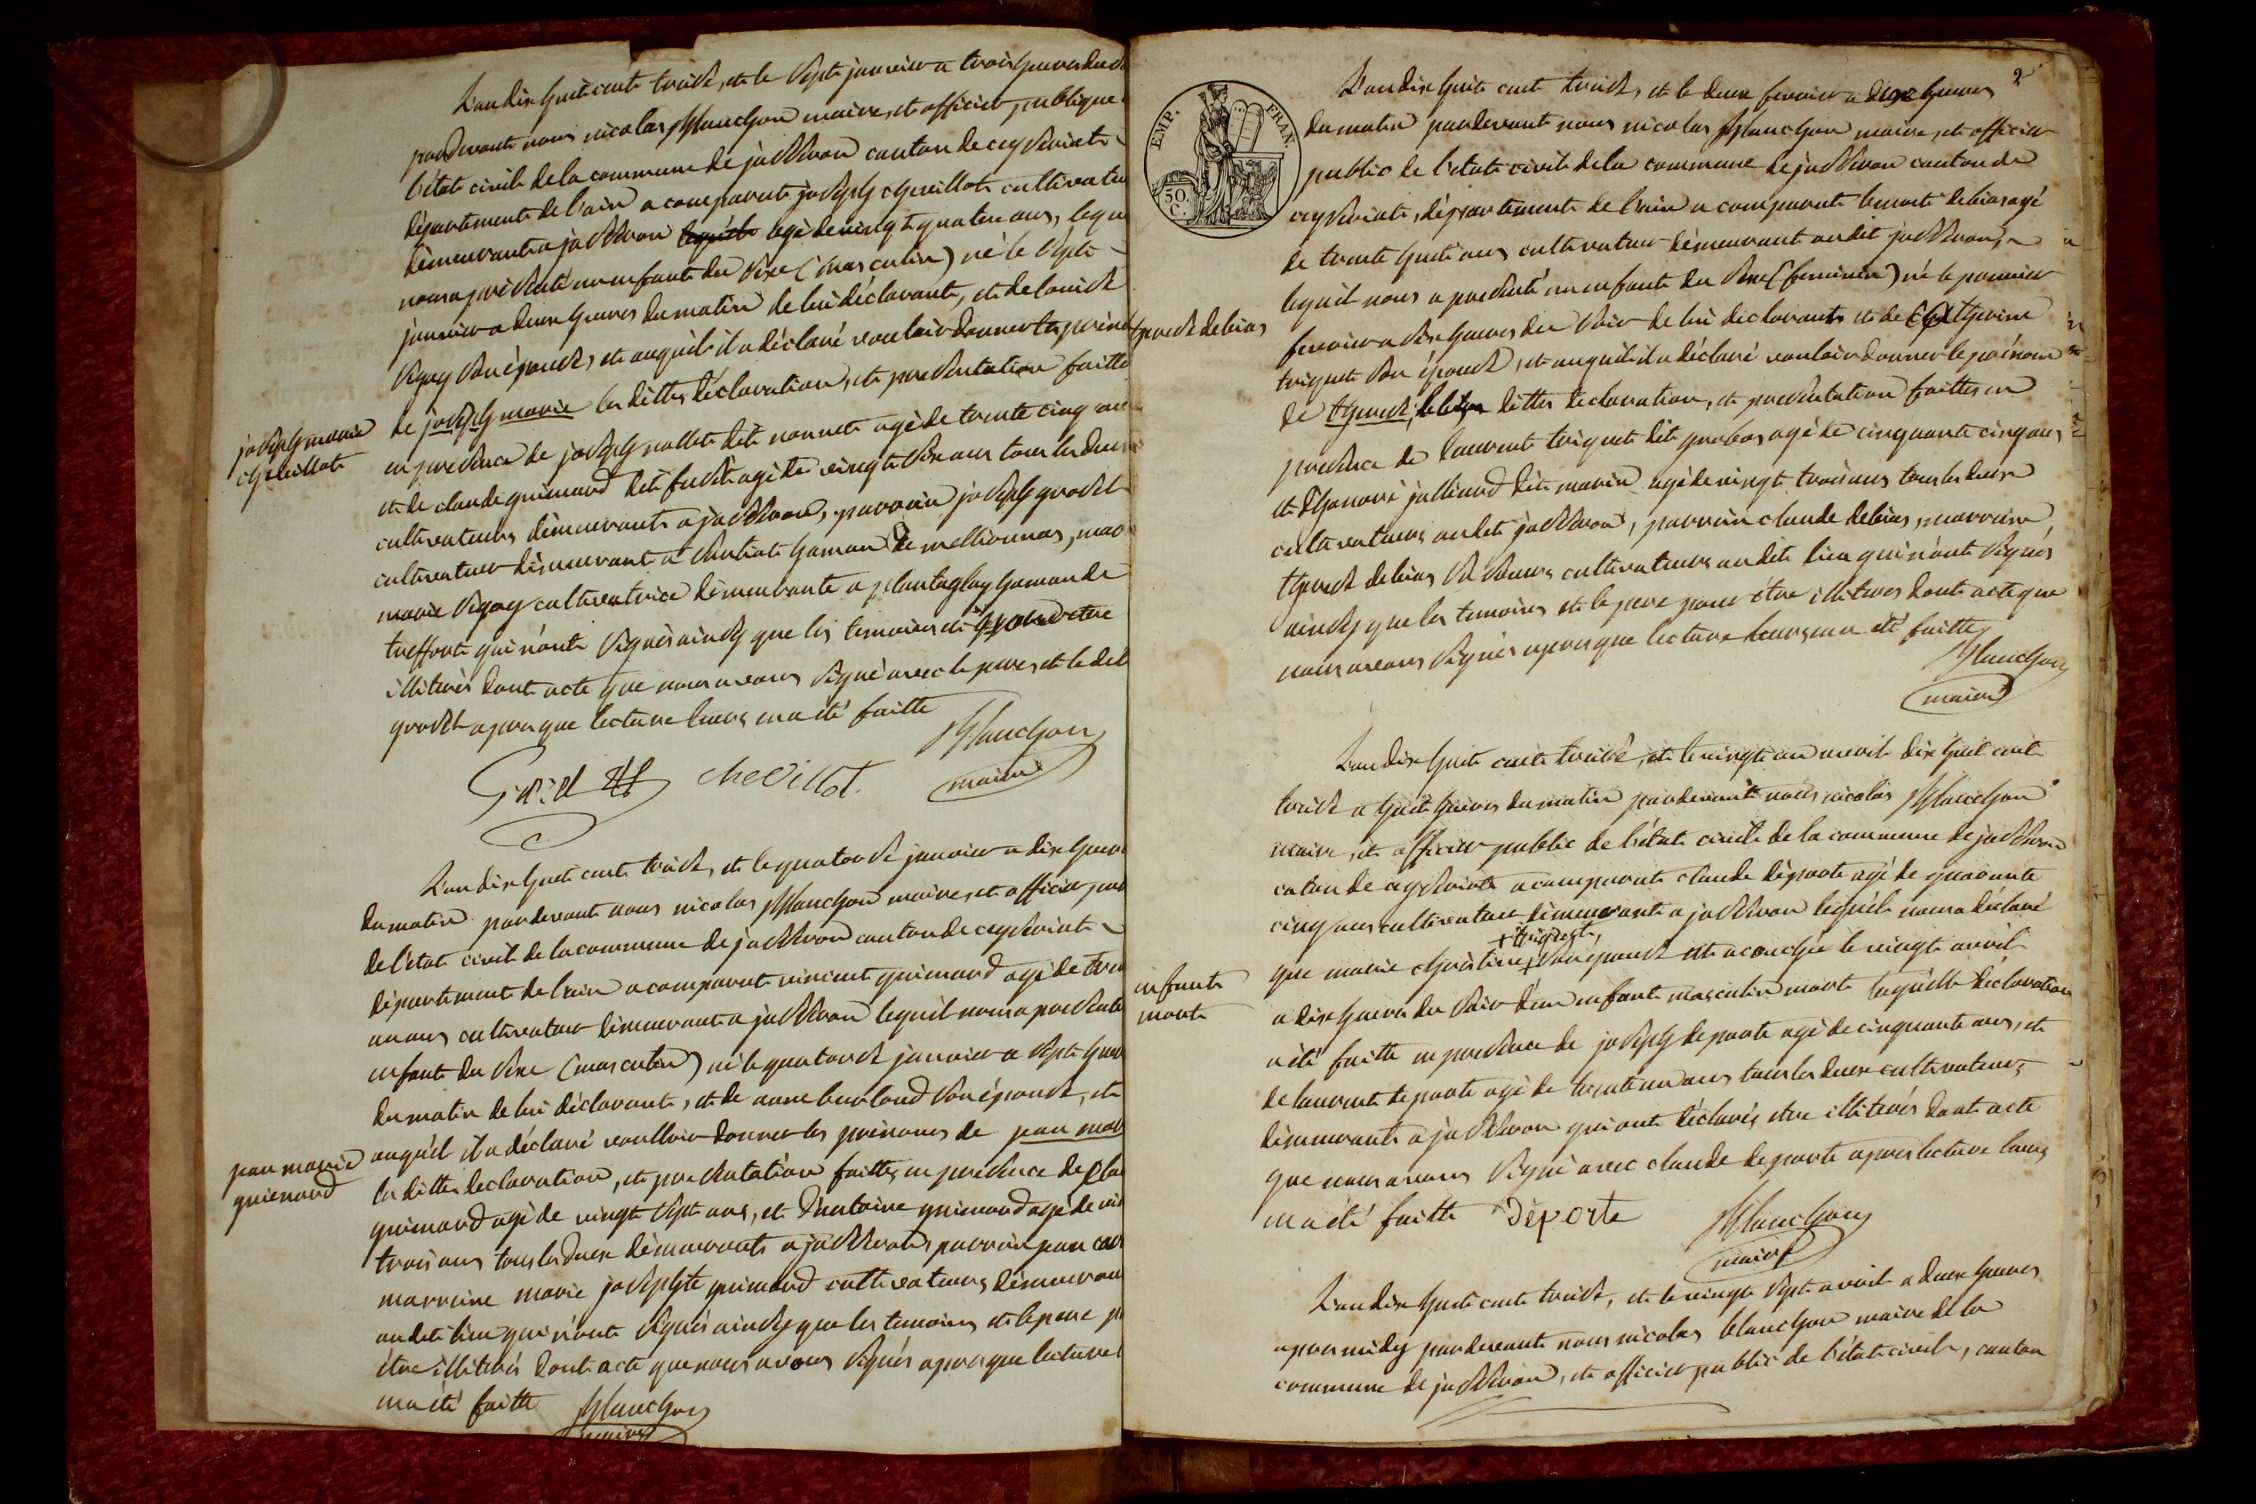 L'an dix huit cent treize, et le sept janvier a trois heures du
pardevant nous nicolas Blanchon maire, et officier publique
l'état civil de la commune de jasseron canton de ceyseriat
département de l'ain a comparut joseph chevillot cultivateu
demeurant a jasseron agé de vingt quatre ans, lequ
nous a présenté un enfant du sexe (masculin) né le sept
janvier a deux heures du matin de lui déclarant, et de louise
son épouse, et auquel il a déclaré vouloir donner les prénom
joseph marie
chevillot
de joseph marie les dittes déclaration, et presentation faitte
en presence de joseph nallet dit nonnet agé de trente cinq ans
et de claude guienard dit agé de vingt six ans tous les deux
cultivateurs demeurants a jasseron, parrain joseph grosset
cultivateur demeurant a hamau de meillonnas, mar
marie cultivatrice demeurante a plantaglay hamau de
treffort qui n'ont signés ainsy que les temoins pour être
illiterés dont acte que nous avons signé avec le pere, et le dit
grosset apres que lecture leurs en a été faitte
Blanchon
maire
chevillot.
L'an dix huit cent treize, et le quatorze janvier a dix heur
du matin pardevant nous nicolas Blanchon maire, et officier pub
de l'état civil de la commune de jasseron canton de ceyseriat
département de l'ain a comparut vincent guienard agé de tren
un ans cultivateur demeurant a jasseron lequel nous a présenté
enfant du sexe (masculin) né le quatorze janvier a sept heur
du matin de lui déclarant, et de anne burland son épouse, et
jean marie
guienard
auquel il a déclaré voulloir donner les prénoms de jean mar
les dittes declaration, et presentation faittes en presence de Cla
guienard agé de vingt sept ans, et d'antoine guienard agé de vin
trois ans tous les deux demeurants a jasseron, parrain jean
marreine marie josephte guienard cultivateurs demeuran
audit lieu qui n'ont signés ainsy que les temoins et le pere p
être illiterés dont acte que nous avons signés apres que lecture l
en a été faitte Blanchon
maire
2
EMP. FRAN.
50.
C.
L'an dix huit cent treize, et le deux fevrier a dix heures
du matin pardevant nous nicolas Blanchon maire, et officier
public de l'état civil de la commune de jasseron canton de
ceyseriat, département de l'ain a comparut benoit debias agé
de trente huit ans cultivateur demeurant audit jasseron,
lequil nous a presenté un enfant du sexe (feminin) né le premier
fevrier a six heures du soir de lui declarant, et de Catherine
therese debias
triquet son épouse, et auquil il a déclaré vouloir donner le prénom
de therese, les dittes declaration, et presentation faittes en
presence de laurent triquet dit grobas agé de cinquante cinq ans
et d'honoré julliard dit marin agé de vingt trois ans tous les deux
cultivateurs audit jasseron, parrain claude debias, marraine
therese debias cultivateurs audit lieu qui n'ont signés
ainsy que les temoins et le pere pour être illiterés dont acte que
nous avons signés apres que lecture leurs en a été faitte
Blanchon
maire
L'an dix huit cent treize, et le vingt un avril dix huit cent
treize a huit heures du matin pardevant nous nicolas Blanchon
maire, et officier public de l'état civil de la commune de jasseron
caton de ceyseriat a comparut claude deporte agé de quarante
cinq ans cultivateur demeurant a jasseron lequel nous a déclaré
+ triquet,
que marie christine + son épouse est acouchée le vingt avril
enfant
mort
a dix heures du soir d'un enfant masculin mort laquelle déclaration
a été faitte en presence de joseph deporte agé de cinquante ans, et
de laurent deporte agé de trente un ans tous les deux cultivateurs
demeurants a jasseron qui ont déclarés etre illiterés dont acte
que nous avons signé avec claude deporte apres lecture leurs
en a été faitte Déporte
Blanchon
maire
L'an dix huit cent treize, et le vingt sept avril a deux heures
apres midy pardevant nous nicolas blanchon maire de la
commune de jasseron, et officier public de l'état civil, canton